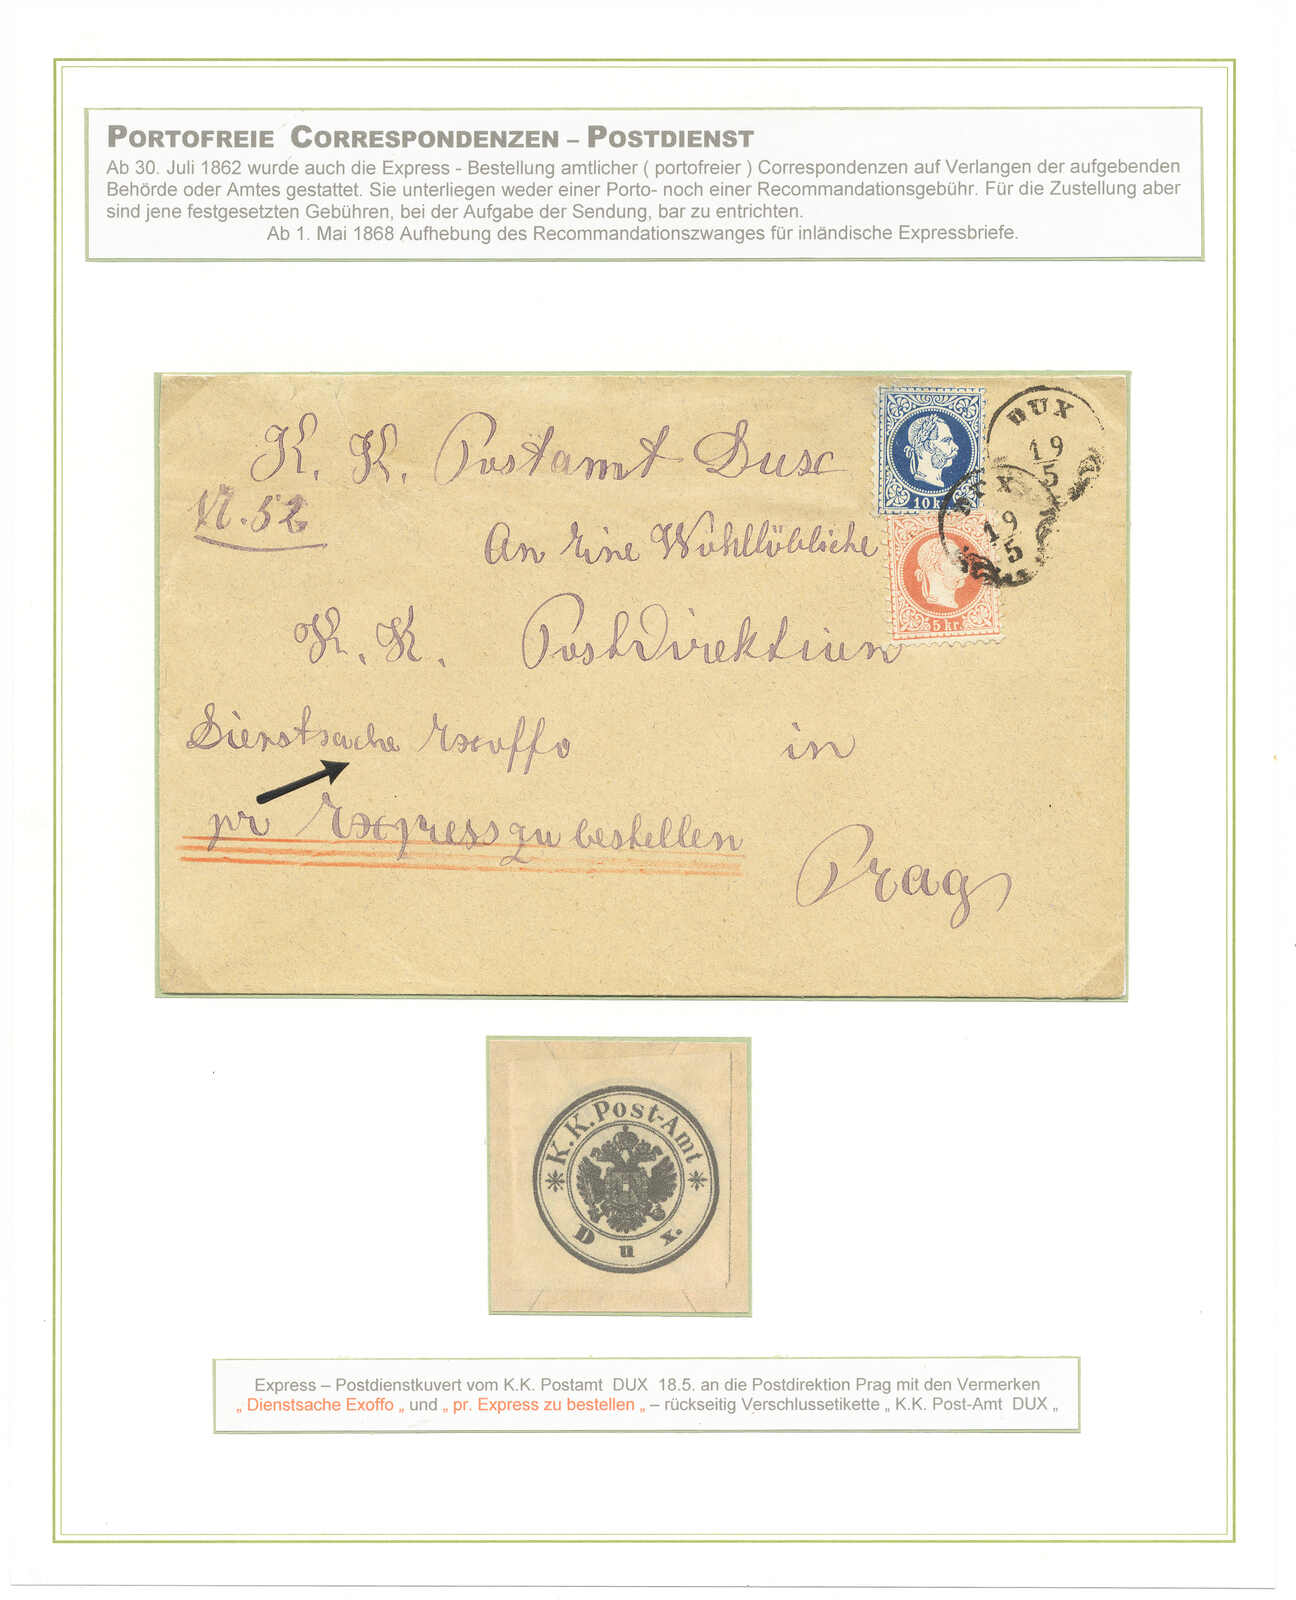 PORTOFREIE CORRESPONDENZEN – POSTDIENST
Ab 30. Juli 1862 wurde auch die Express - Bestellung amtlicher ( portofreier ) Correspondenzen auf Verlangen der aufgebenden
Behörde oder Amtes gestattet. Sie unterliegen weder einer Porto- noch einer Recommandationsgebühr. Für die Zustellung aber
sind jene festgesetzten Gebühren, bei der Aufgabe der Sendung, bar zu entrichten.
Ab 1. Mai 1868 Aufhebung des Recommandationszwanges für inländische Expressbriefe.
K. K. Postamt Dux
N. 52
An Eine Wohllöbliche
K. K. Postdirektion
Dienstsache Exoffo in
pr Express zu bestellen
Prag
10 kr.
5 kr.
DUX
19
5
DUX
19
5
K.K. Post-Amt
Dux.
Express – Postdienstkuvert vom K.K. Postamt DUX 18.5. an die Postdirektion Prag mit den Vermerken
„ Dienstsache Exoffo „ und „ pr. Express zu bestellen „ – rückseitig Verschlussetikette „ K.K. Post-Amt DUX „